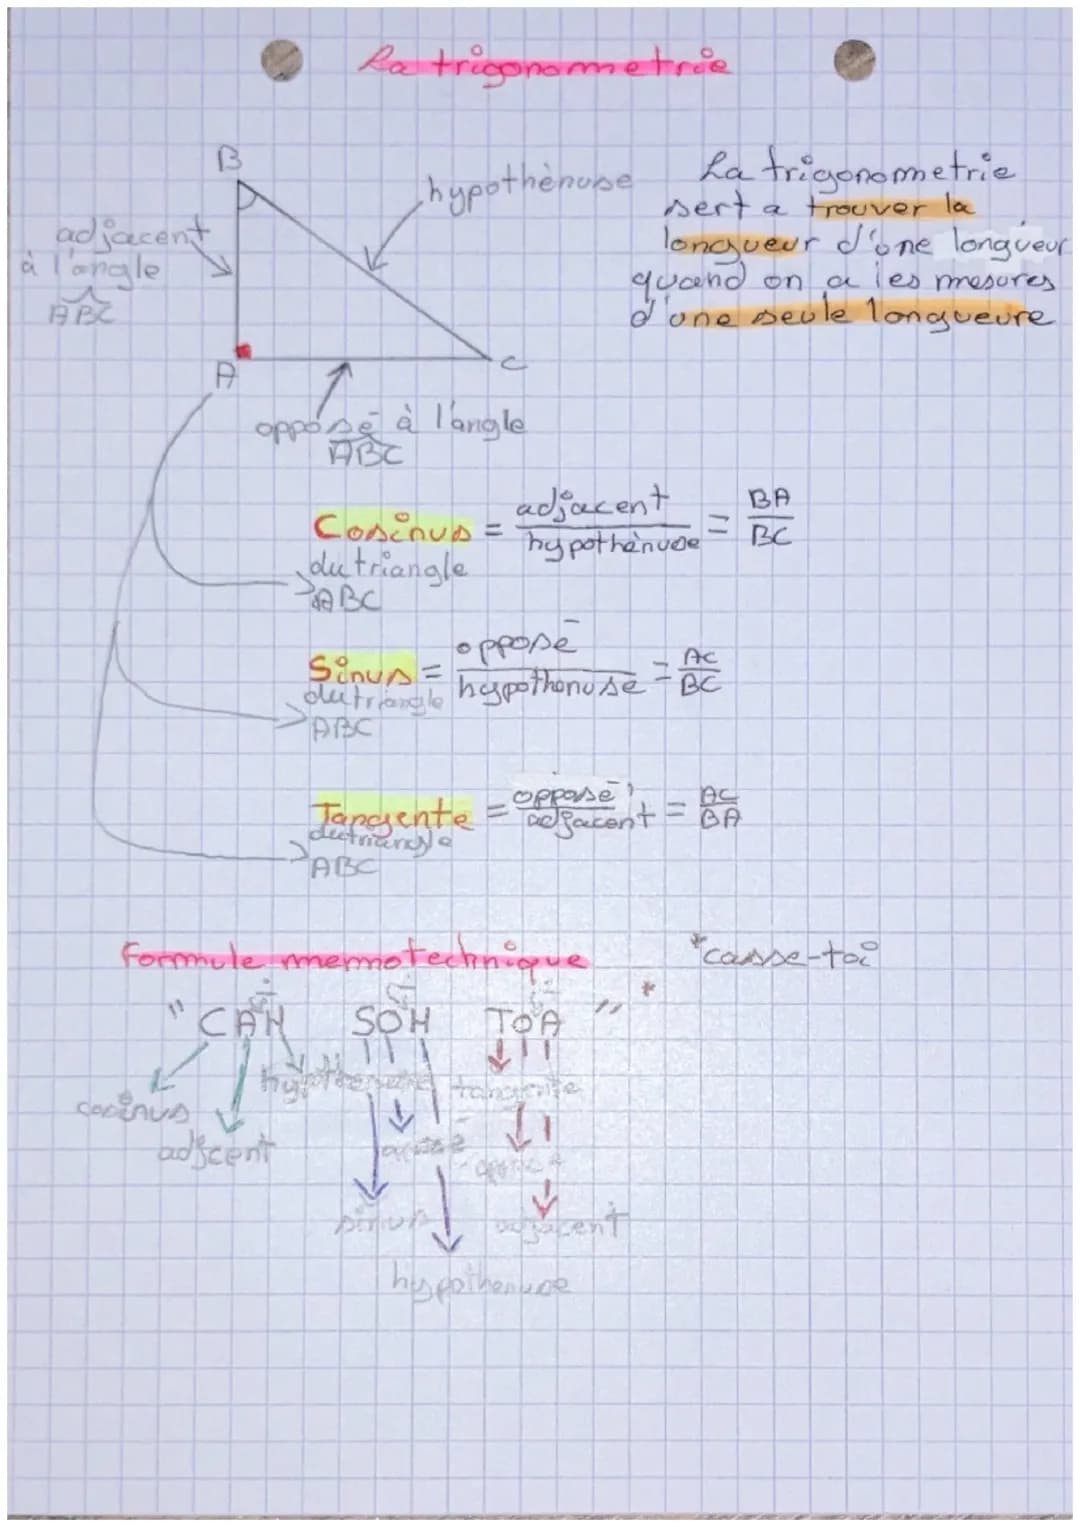 La trigonometrie
B
hypothènuse
adjacent
à l'angle
ABC
La trigonometrie
sert a trouver la
longueur d'une longueur
quand on a les mesures
d'une seule longueure
A
C
opposé à l'angle
ABC
Cosinus = adjacent / hypothènuse = BA / BC
du triangle
ABC
Sinus = opposé / hypothenuse = AC / BC
du triangle
ABC
Tangente = opposé / adjacent = AC / BA
du triangle
ABC
Formule memotechnique
*casse-toi
"CAH SOH TOA" *
hypothenuse
tangente
cosinus
adjcent
opposé
opposé
sinus
adjacent
hypothenuse